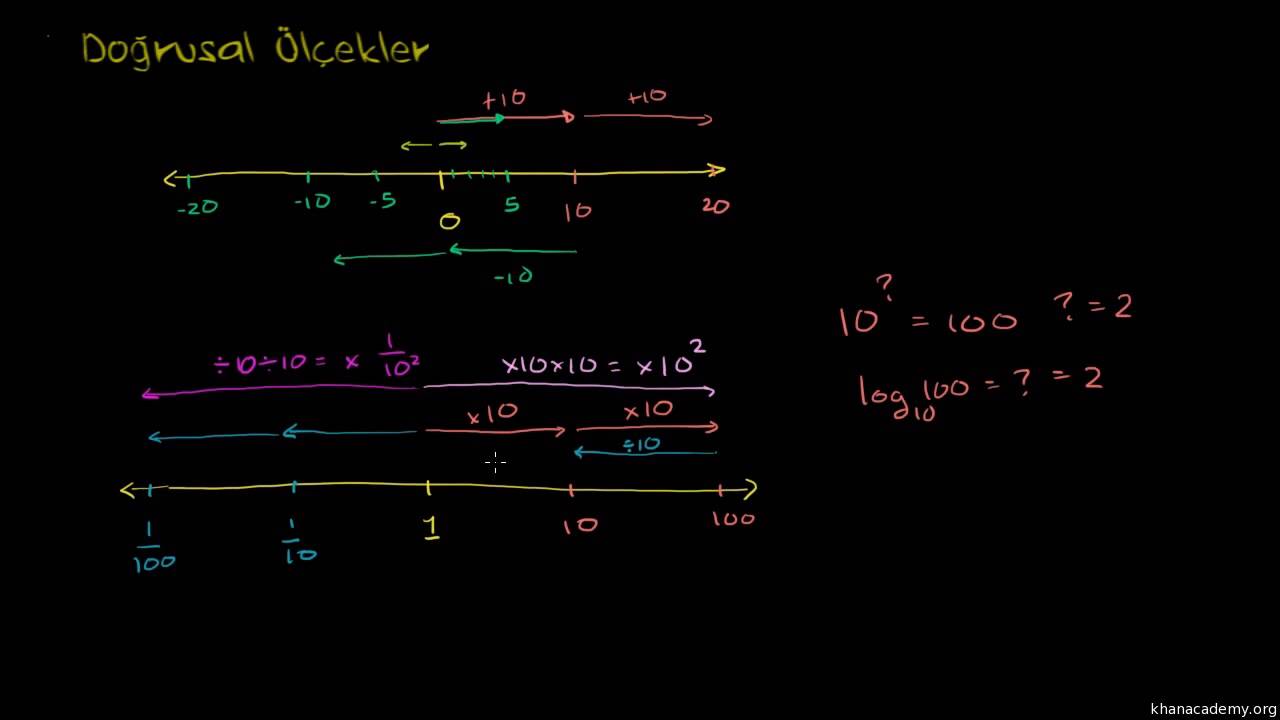 Doğrusal Ölçekler
+10 +10
-20 -10 -5 0 5 10 20
-10
10^? = 100 ? = 2
÷10÷10 = x 1/10² x10x10 = x10²
log₁₀100 = ? = 2
x10 x10
÷10
1/100 1/10 1 10 100
khanacademy.org